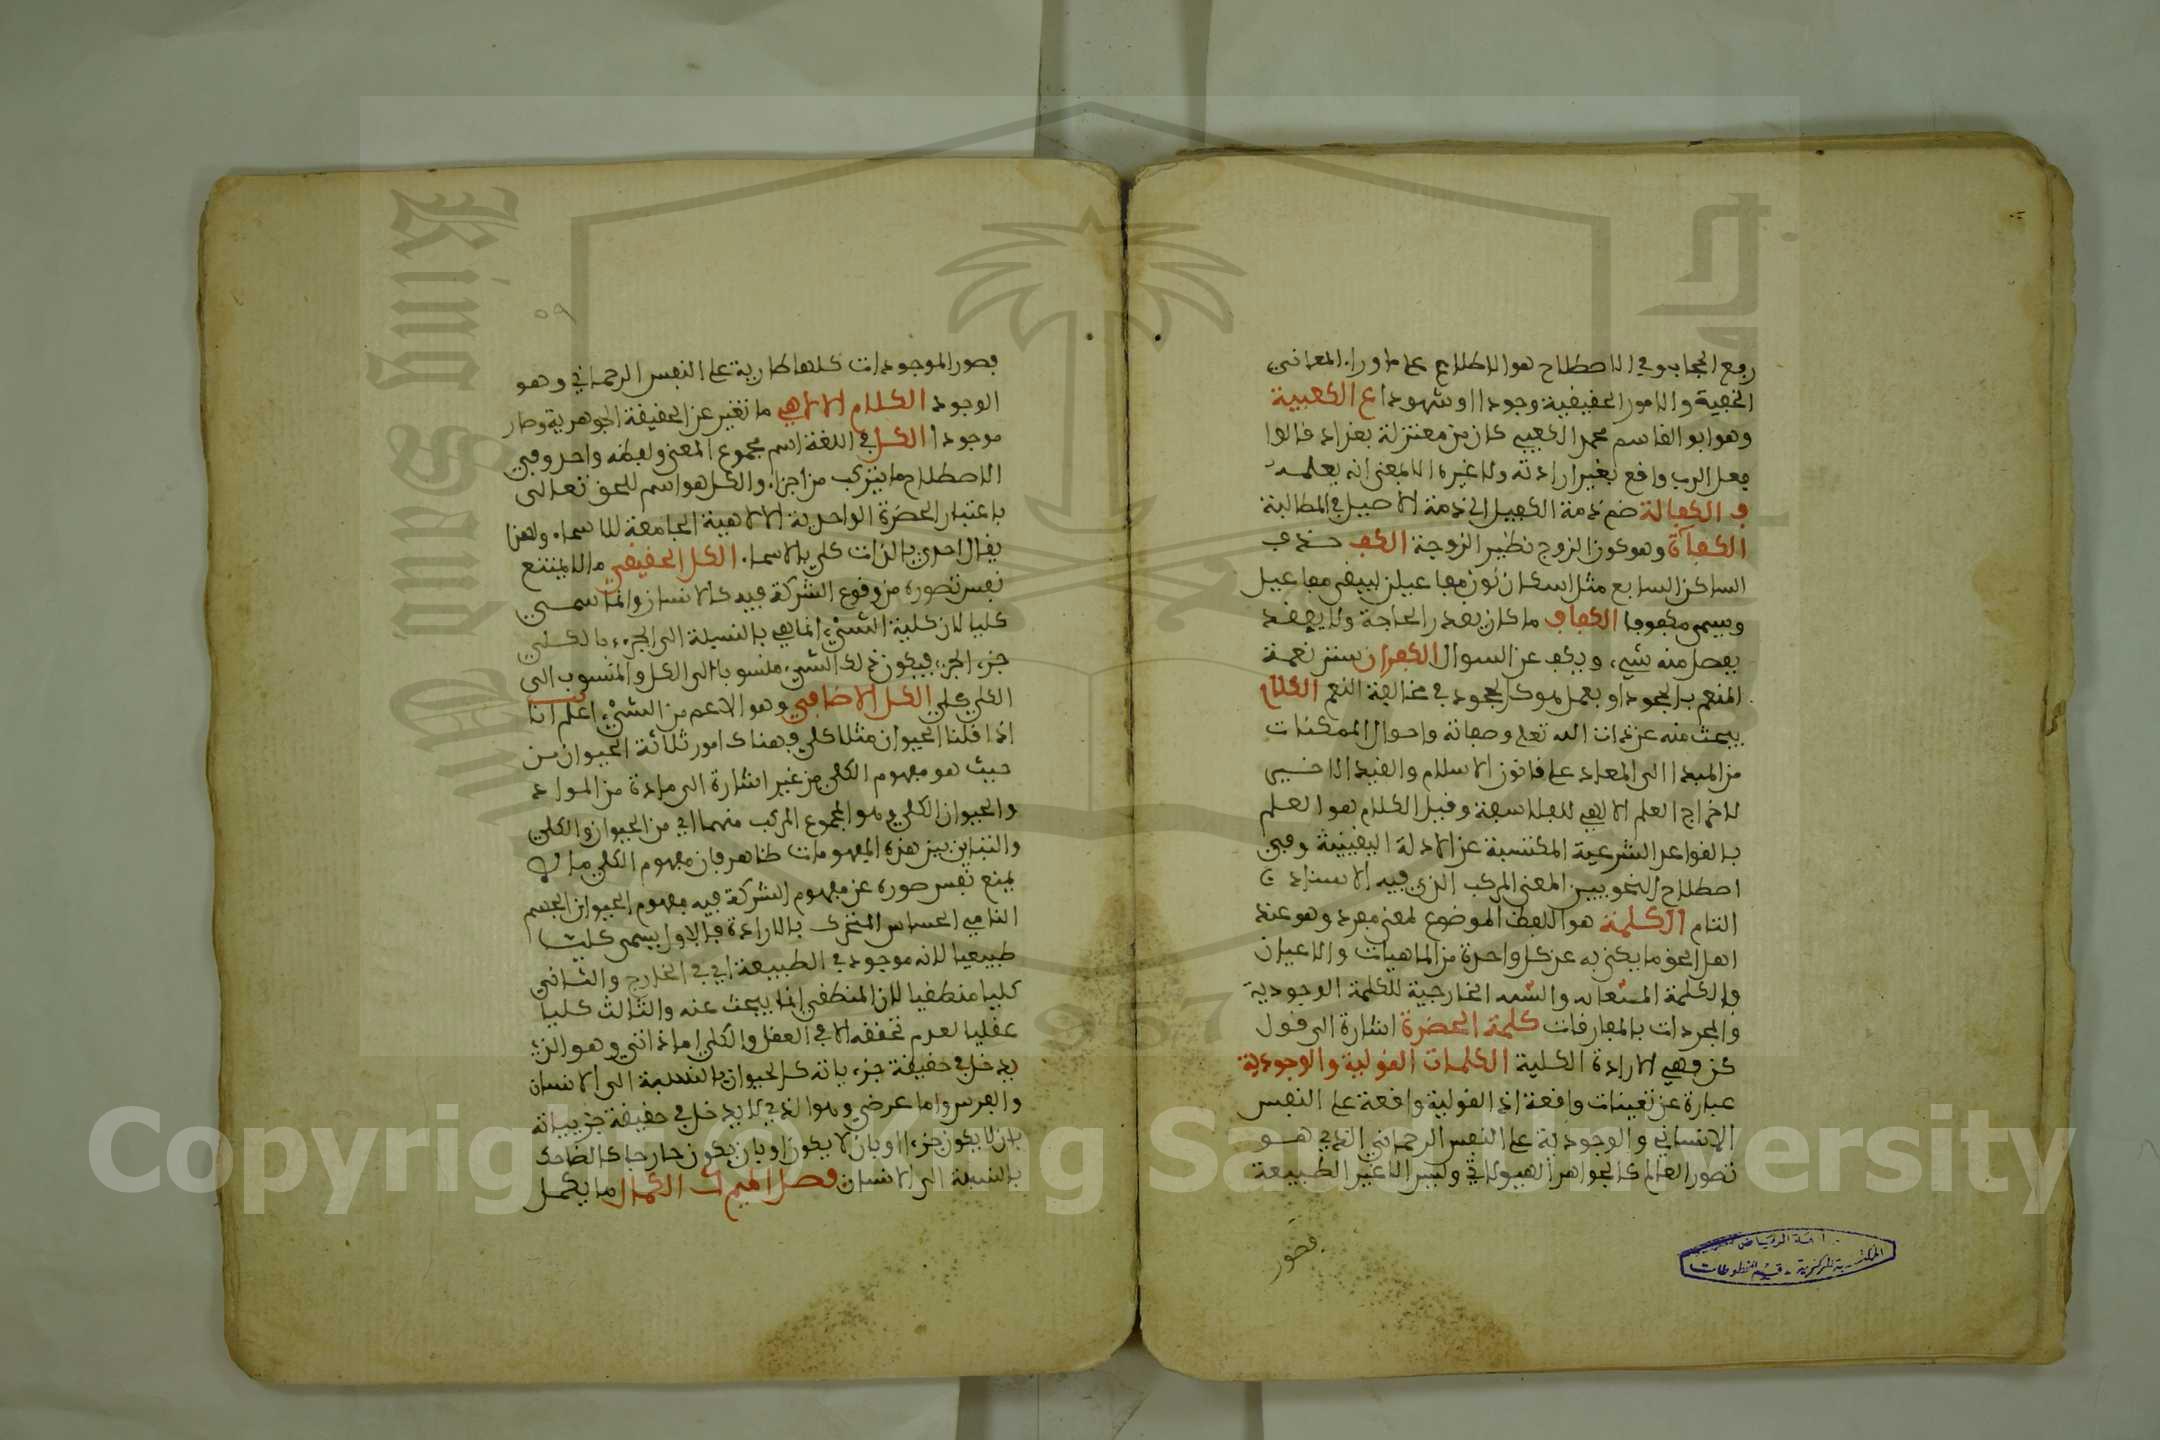 رفع الحجاب وفي الاصطلاح هو الاطلاع على ما وراء المعاني
الخفية والامور الحقيقية وجودا او شهودا ع الكعبية
وهو ابو القاسم محمد الكعبي كان من معتزلة بغداد قالوا
فعل الرب واقع بغير ارادته ولا غيره الا بمعنى انه يعلمه
ف الكفالة ضم ذمة الكفيل الى ذمة الاصيل في المطالبة
الكفآة وهو كون الزوج نظير الزوجة الكف حذف
الساكن السابع مثل اسكان نون مفاعيلن ليبقى مفاعيل
ويسمى مكفوفا الكفاف ما كان بقدر الحاجة ولا
يفضل منه شيء ويكف عن السوال الكفران ستر نعمة
المنعم بالجحود او بعمل هو كالجحود في مخالفة النعم الكلام
يبحث منه عن ذات الله تعلى وصفاته واحوال الممكنات
من المبدا الى المعاد على قانون الاسلام والقيد الاخيير
لاخراج العلم الالاهي للفلاسفة وقيل الكلام هو العلم
بالقواعد الشرعية المكتسبة عن الادلة اليقينية وفي
اصطلاح النحويين المعنى المركب الذي فيه الاسناد
التام الكلمة هو اللفظ الموضوع لمعنى مفرد وهو عند
اهل الحق ما يكنى به عن كل واحدة من الماهيات والاعيان
والكلمة الخارجية للكلمة الوجودية
والمجردات بالمفارقات كلمة الحضرة اشارة الى قول
كن فهي الارادة الكلية الكلمات القولية والوجودية
عبارة عن تعينات واقعة اذ القولية واقعة على النفس
الانساني والوجودية على النفس الرحماني الذي هو
تصور العالم كالجواهر الهيولاني وليس الا غير الطبيعة
فصور
٥٩
فصور الموجودات كلها طارية على النفس الرحماني وهو
الوجود الكلام الالاهي ما تغير عن الحقيقة الجوهرية وصار
موجودا الكل في اللغة اسم مجموع المعنى ولفظه واحد وفي
الاصطلاح ما يتركب من اجزاء والكل هو اسم للحق تعالى
باعتبار الحضرة الواحدية الالاهية الجامعة للاسماء ولهذا
يقال احدي بالذات كلي بالاسماء الكل الحقيقي ما لا يمتنع
نفس تصوره من وقوع الشركة فيه كالانسان وانما سمي
كليا لان كلية الشيء انما هي بالنسبة الى الجزء بالكلي
جزء الجزء فيكون ذلك الشيء منسوبا الى الكل والمنسوب الى
الكل كلي الكل الاضافي وهو الاعم من الشيء اعلم انا
اذا قلنا الحيوان مثلا كلي فهناك امور ثلاثة الحيوان من
حيث هو مفهوم الكلي من غير اشارة الى مادة من المواد
والحيوان الكلي وهو المجموع المركب منهما اي من الحيوان والكلي
والتباين بين هذه المفهومات ظاهر فان مفهوم الكلي ما لا
يمنع نفس صوره عن مفهوم الشركة فيه مفهوم الحيوان الجسم
النامي الحساس المتحرك بالارادة فالاول يسمى كليا
طبيعيا لانه موجود في الطبيعة اي في الخارج والثاني
كليا منطقيا لان المنطقي انما يبحث عنه والثالث كليا
عقليا لعدم تحققه الا في العقل والكلي اما ذاتي وهو الذي
يدخل في حقيقة جزءياته كالحيوان بالنسبة الى الانسان
والفرس واما عرضي وهو الذي لا يدخل في حقيقة جزيياته
بان لا يكون جزءا او بان لا يكون او بان يكون خارجا كالضاحك
بالنسبة الى الانسان فصل الميم ك الكمال ما يكمل